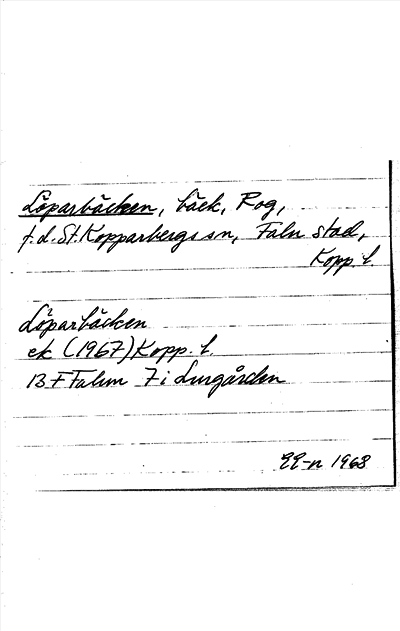 Löparbäcken, bäck, Rog,
f.d. St. Kopparbergs sn, Falu stad,
Kopp. l.
Löparbäcken
ek (1967) Kopp. l.
13 F Falun 7 i Lurgården
1968